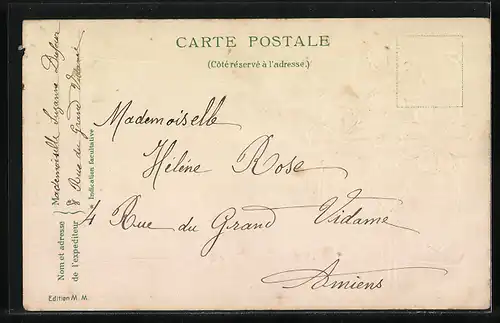 CARTE POSTALE
(Côté réservé à l'adresse.)
Mademoiselle
Hélène Rose
4 Rue du Grand Vidame
Amiens
Nom et adresse
de l'expediteur
Mademoiselle Suzanne
8 Rue du Grand Vidamé
* Indication facultative
Edition M. M.